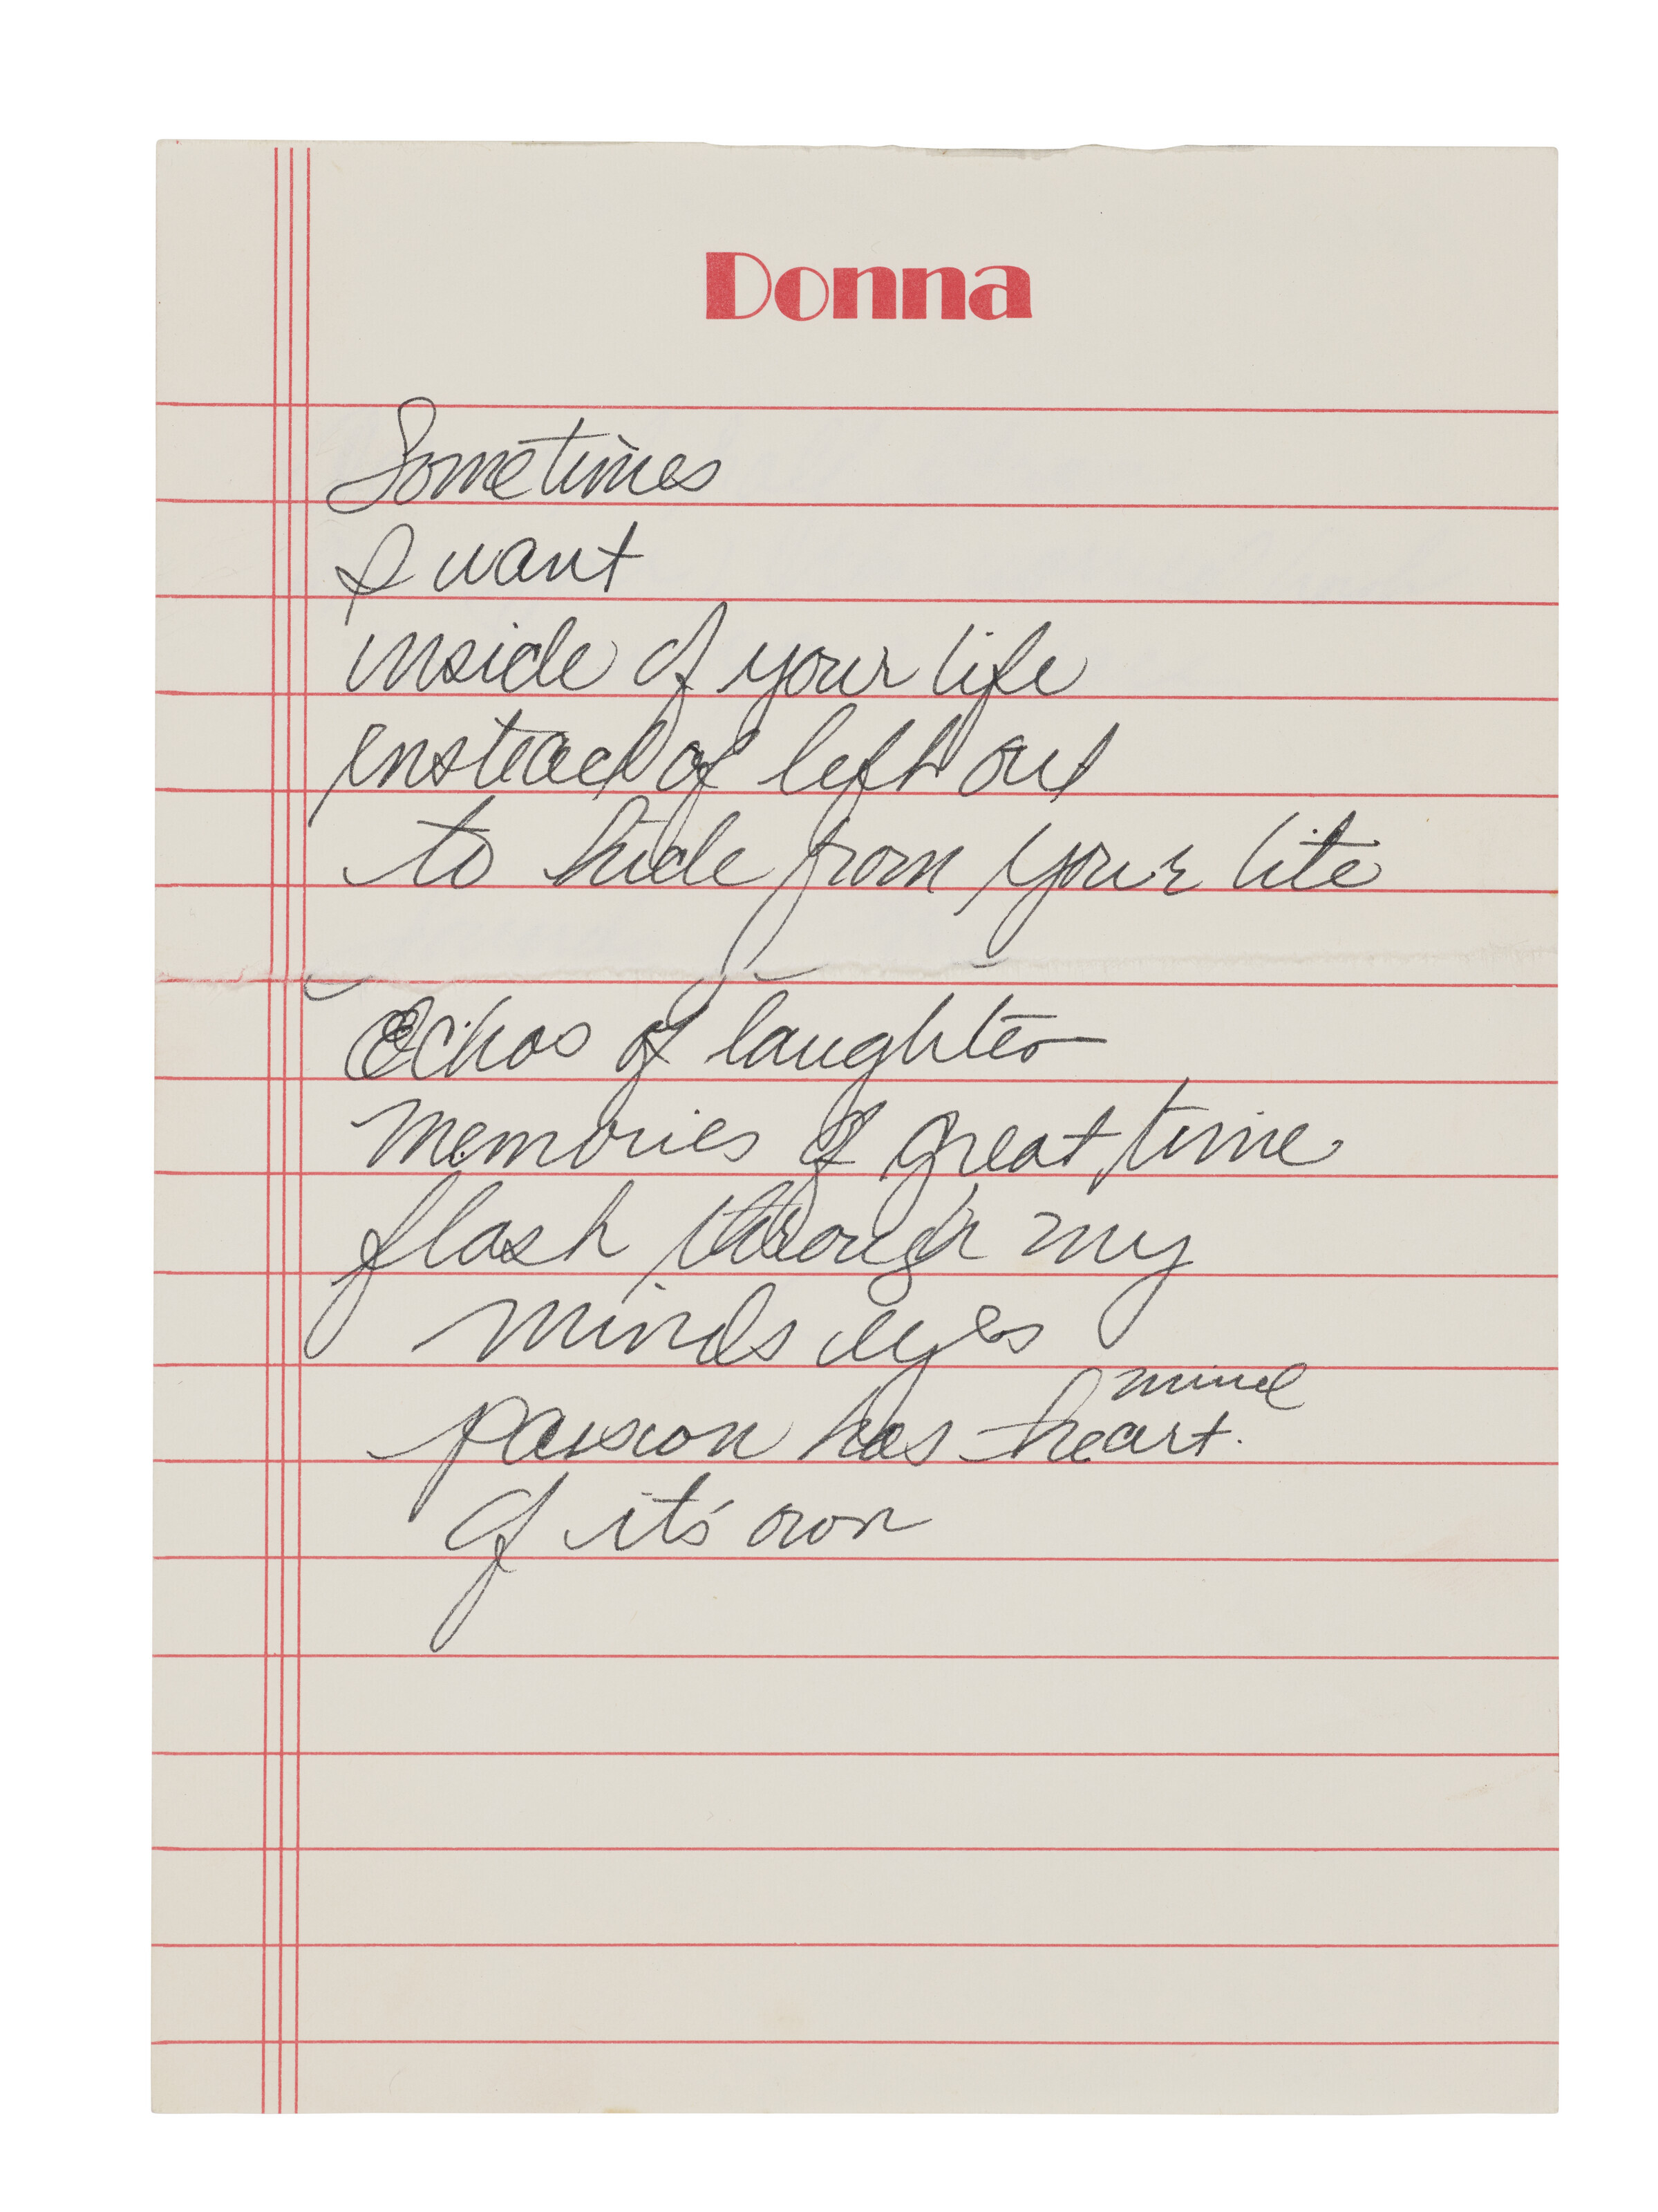 Donna
Sometimes
I want
inside of your life
instead of left out
to hide from your lite
Echos of laughter
memories of great time
flash through my
minds eyes
mind
passion has heart.
of it's own